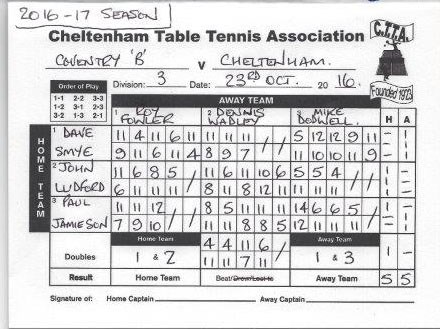 2016-17 SEASON
Cheltenham Table Tennis Association
C.T.T.A.
Founded 1923
COVENTRY 'B' v CHELTENHAM.
Order of Play
Division: 3 Date: 23RD OCT. 2016.
1-1 2-2 3-3
1-2 3-1 2-3
3-2 1-3 2-1
AWAY TEAM
1 ROY FOWLER 2 DENNIS WADLEY 3 MIKE DODWELL. H A
HOME TEAM
1 DAVE 11 4 11 6 11 11 11 11 / / 5 12 12 9 11
SMYE 9 11 6 11 4 8 9 7 11 10 10 11 9
2 JOHN 11 6 8 5 11 6 11 10 6 5 5 4
LUDFORD 6 11 11 11 8 11 8 12 11 11 11 11
3 PAUL 11 11 12 8 5 11 11 11 14 6 6 5
JAMIESON 7 9 10 11 11 8 8 5 12 11 11 11
Home Team Away Team
Doubles 1 & 2 4 4 11 6 / 1 & 3 1 -
11 11 7 11
Result Home Team Beat/Drew/Lost to Away Team 5 5
Signature of: Home Captain Away Captain